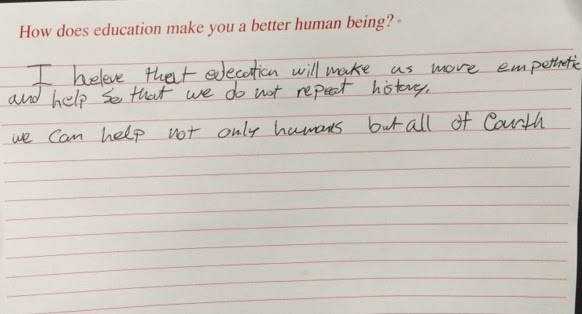 How does education make you a better human being?
I beleve that edecation will make us more empathetic
and help so that we do not repeat history.
we can help not only humans but all of Earth